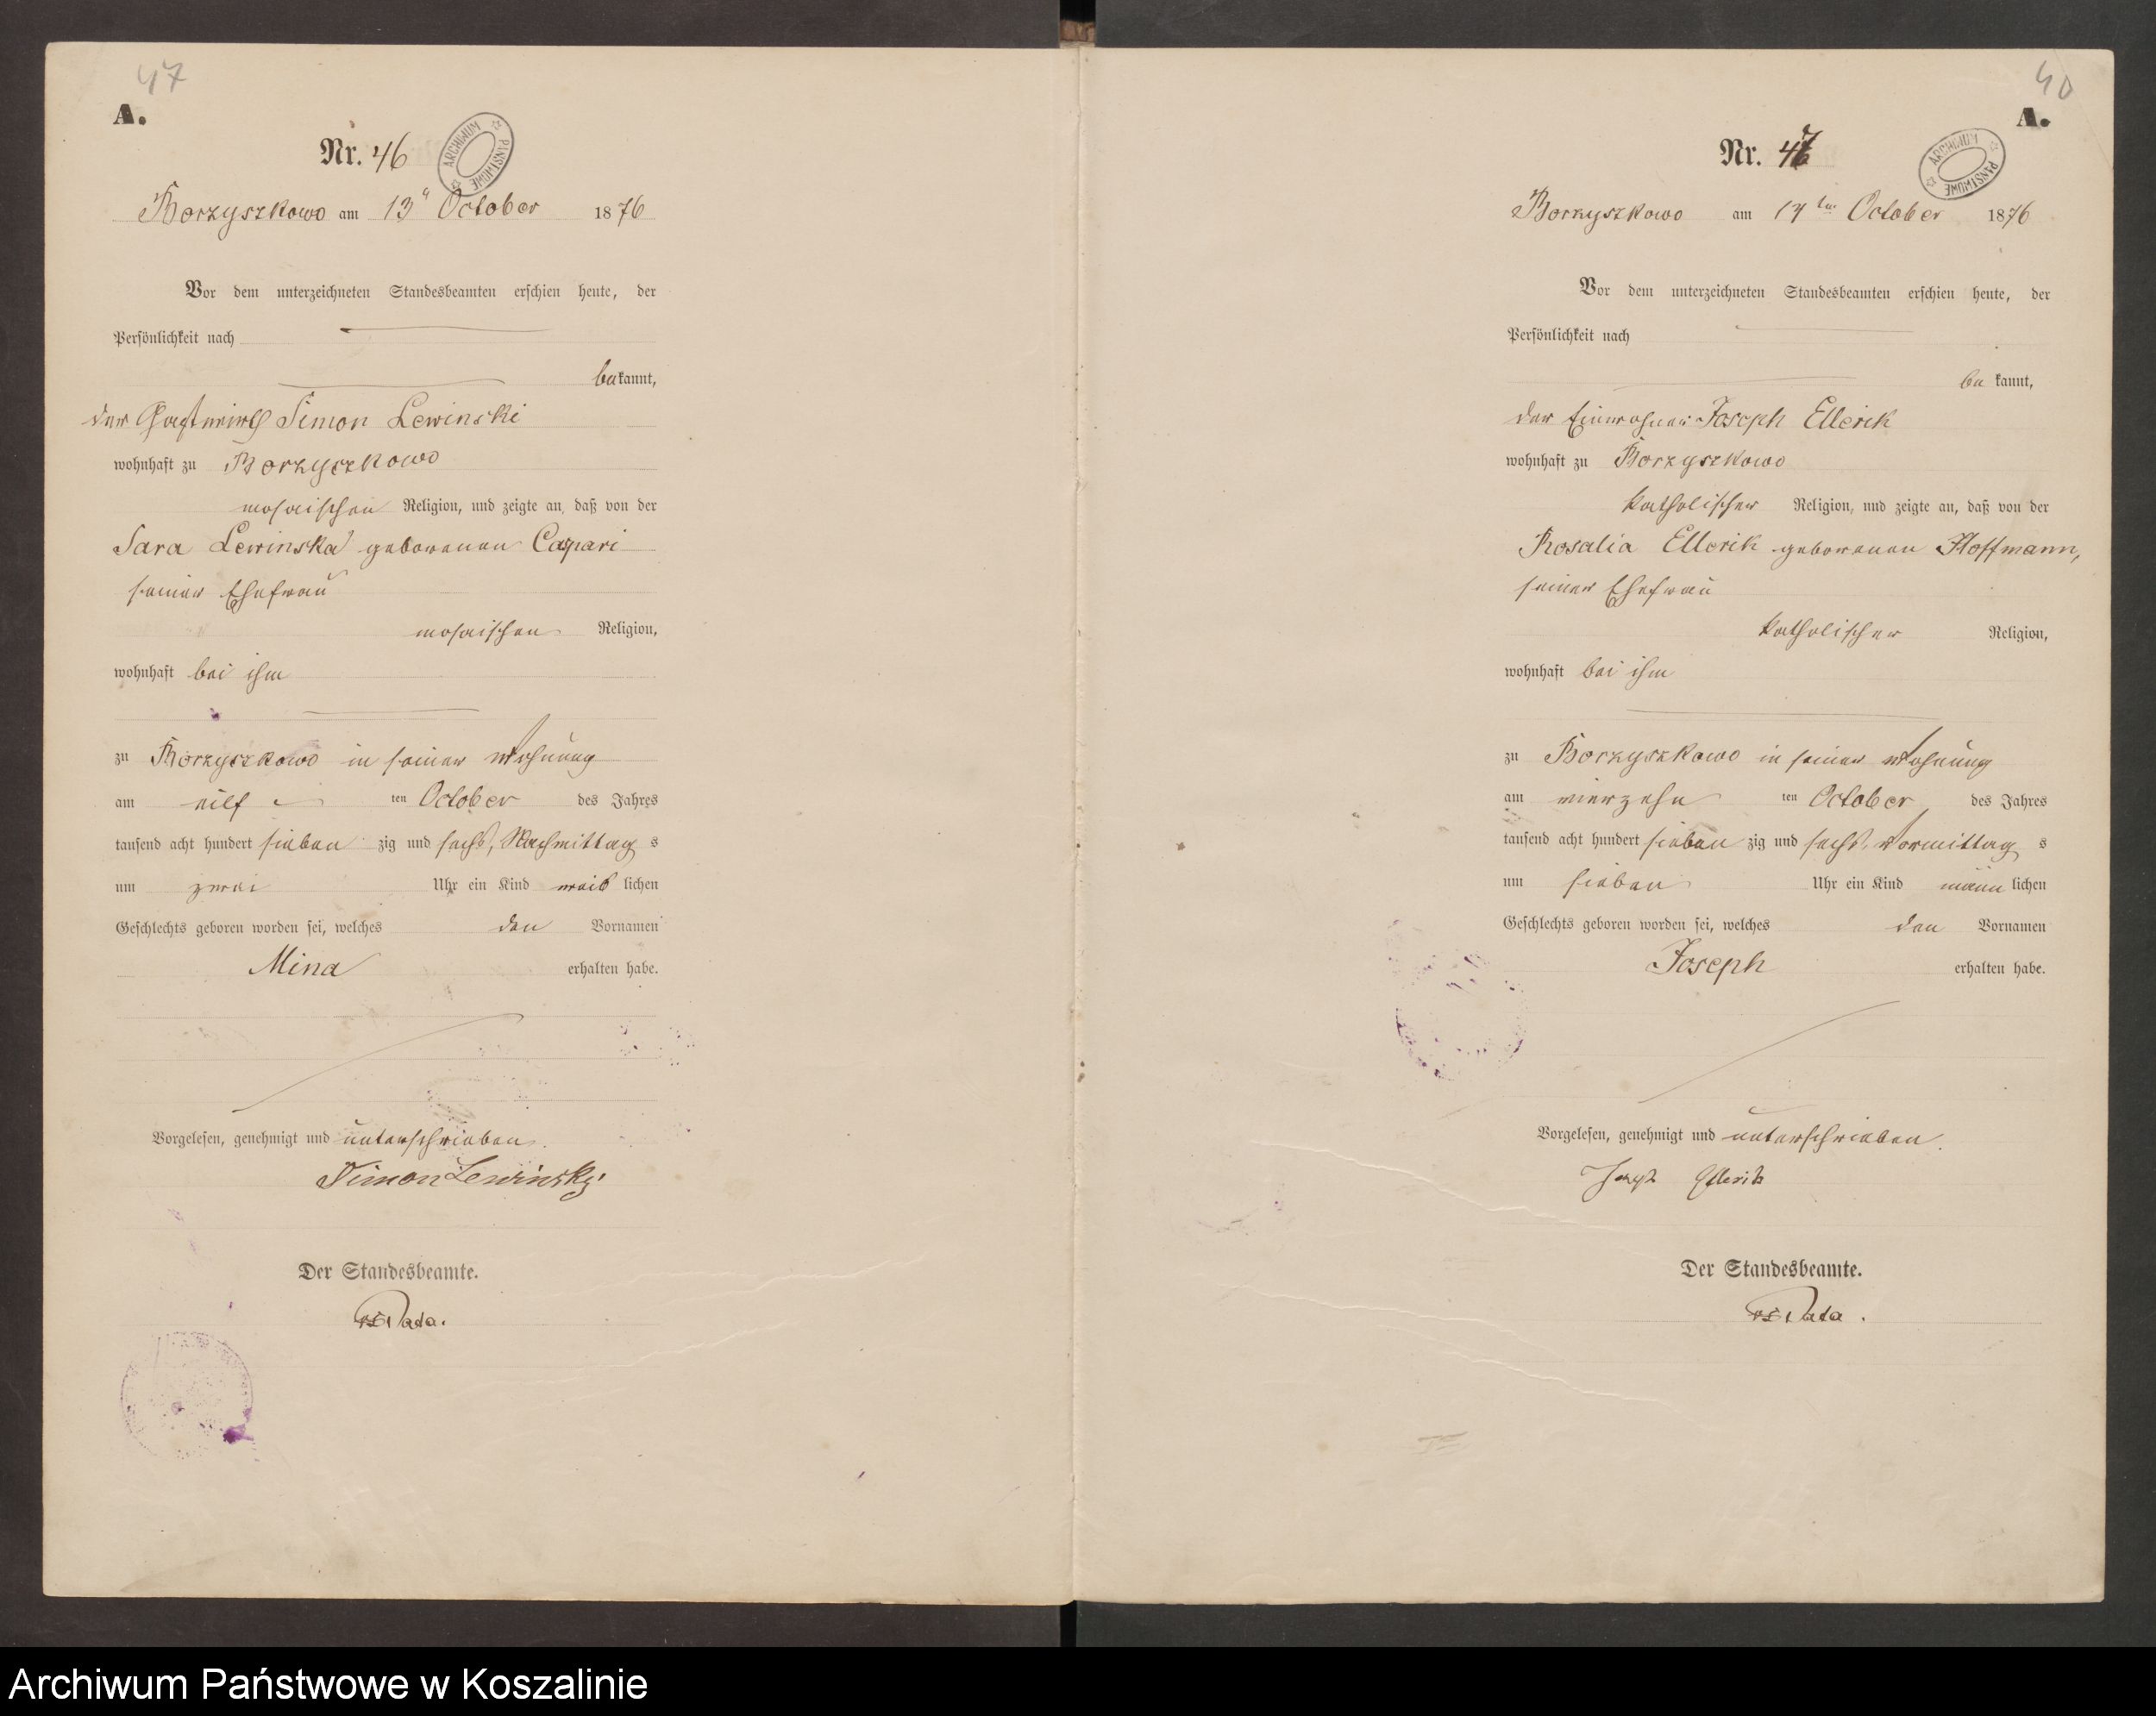 47
A.
Nr. 46
ARCHIWUM PAŃSTWOWE
Borzyszkowo am 13ᵗ October 1876
Vor dem unterzeichneten Standesbeamten erschien heute, der
Persönlichkeit nach
bekannt,
der Gastwirth Simon Lewinski
wohnhaft zu Borzyszkowo
mosaischen Religion, und zeigte an, daß von der
Sara Lewinska geborenen Caspari
seiner Ehefrau
mosaischen Religion,
wohnhaft bei ihm
zu Borzyszkowo in seiner Wohnung
am eilf ten October des Jahres
tausend acht hundert sieben zig und sechs, Nachmittag s
um zwei Uhr ein Kind weib lichen
Geschlechts geboren worden sei, welches den Vornamen
Mina erhalten habe.
Vorgelesen, genehmigt und unterschrieben.
Simon Lewinsky
Der Standesbeamte.
40
A.
Nr. 47
ARCHIWUM PAŃSTWOWE
Borzyszkowo am 17 ten October 1876
Vor dem unterzeichneten Standesbeamten erschien heute, der
Persönlichkeit nach
be kannt,
der Einwohner Joseph Ellerik
wohnhaft zu Borzyszkowo
katholischer Religion, und zeigte an, daß von der
Rosalia Ellerik geborenen Hoffmann,
seiner Ehefrau
katholischer Religion,
wohnhaft bei ihm
zu Borzyszkowo in seiner Wohnung
am vierzehn ten October des Jahres
tausend acht hundert sieben zig und sechs, Vormittag s
um sieben Uhr ein Kind männ lichen
Geschlechts geboren worden sei, welches den Vornamen
Joseph erhalten habe.
Vorgelesen, genehmigt und unterschrieben.
Joseph Ellerik
Der Standesbeamte.
Archiwum Państwowe w Koszalinie